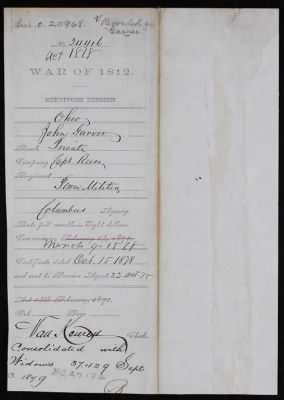 Recorded as
"Garver"
No. 24416
Act 1878
WAR OF 1812.
SURVIVORS' PENSION.
Ohio
John Garver
Rank Private
Company Capt.
Regiment
Penn Militia
Columbus Agency.
Rate per month Eight dollars.
Commencing February 14, 1871.
March 9. 1878
Certificate dated Oct. 15 1878
and sent to Pension Agent 22 Oct 78
Act 14th February, 1871.
Vol. Page
Clerk
Consolidated with
Widows 37429 Sept
3. 1879